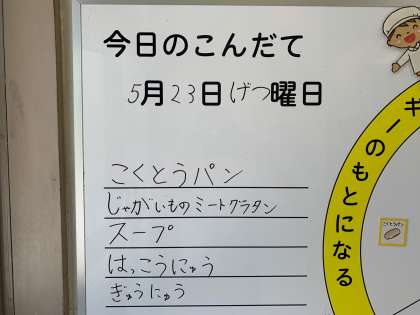 今日のこんだて
5月23日げつ曜日
こくとうパン
じゃがいものミートグラタン
スープ
はっこうにゅう
ぎゅうにゅう
キーのもとになる
こくとうパン